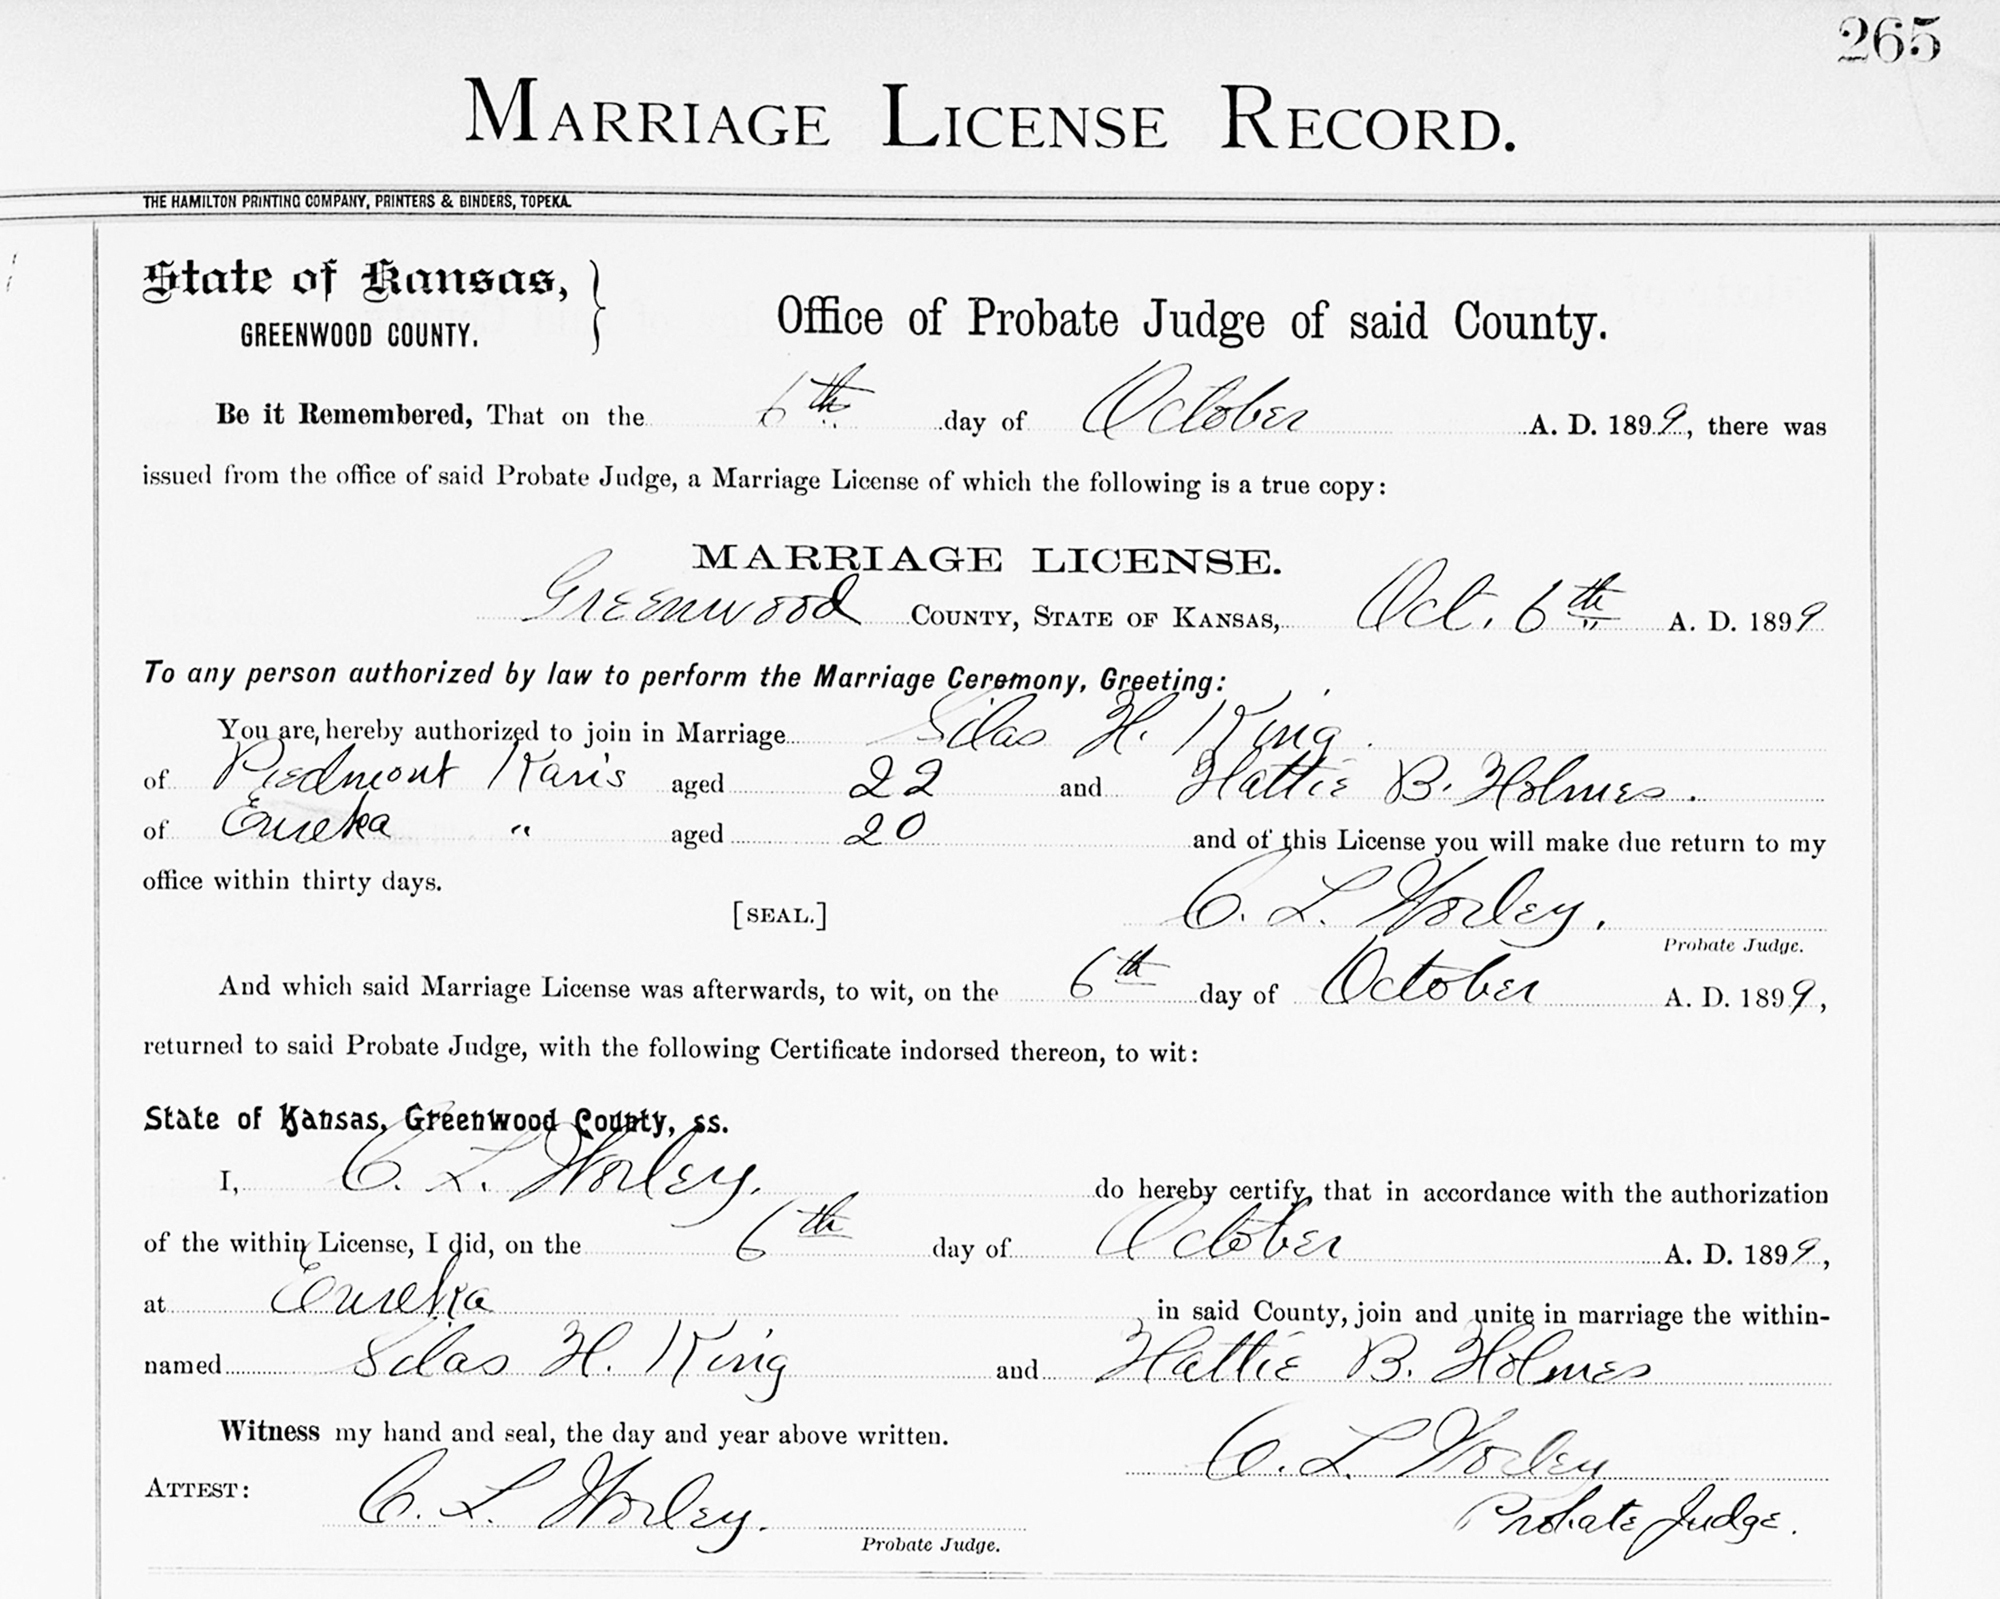 265
MARRIAGE LICENSE RECORD.
THE HAMILTON PRINTING COMPANY, PRINTERS & BINDERS, TOPEKA.
State of Kansas,
GREENWOOD COUNTY.
Office of Probate Judge of said County.
Be it Remembered, That on the 6th day of October A. D. 1899, there was
issued from the office of said Probate Judge, a Marriage License of which the following is a true copy:
MARRIAGE LICENSE.
Greenwood COUNTY, STATE OF KANSAS, Oct. 6th A. D. 1899
To any person authorized by law to perform the Marriage Ceremony, Greeting:
You are, hereby authorized to join in Marriage Silas H. King.
of Piedmont Kans aged 22 and Hattie B. Holmes.
of Eureka " aged 20 and of this License you will make due return to my
office within thirty days.
[SEAL.] C. L. Worley.
Probate Judge.
And which said Marriage License was afterwards, to wit, on the 6th day of October A. D. 1899,
returned to said Probate Judge, with the following Certificate indorsed thereon, to wit:
State of Kansas, Greenwood County, ss.
I, C. L. Worley. do hereby certify, that in accordance with the authorization
of the within License, I did, on the 6th day of October A. D. 1899,
at Eureka in said County, join and unite in marriage the within-
named Silas H. King and Hattie B. Holmes
Witness my hand and seal, the day and year above written.
C. L. Worley
Probate Judge.
ATTEST: C. L. Worley.
Probate Judge.